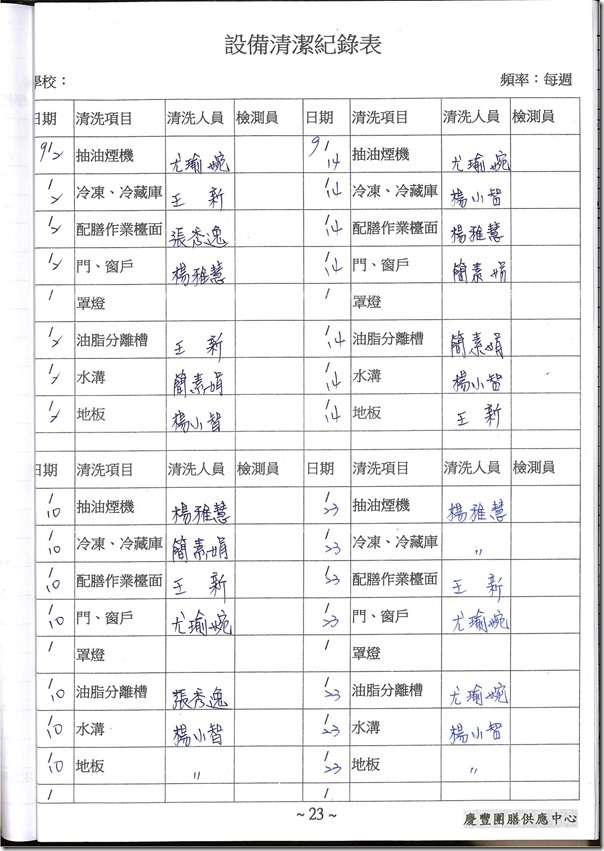 設備清潔紀錄表
學校： 頻率：每週
日期 清洗項目 清洗人員 檢測員 日期 清洗項目 清洗人員 檢測員
9/2 抽油煙機 尤瑜婉 9/14 抽油煙機 尤瑜婉
/2 冷凍、冷藏庫 王 新 /14 冷凍、冷藏庫 楊小智
/2 配膳作業檯面 張秀逸 /14 配膳作業檯面 楊雅慧
/2 門、窗戶 楊雅慧 /14 門、窗戶 簡素娟
/ 罩燈 / 罩燈
/2 油脂分離槽 王 新 /14 油脂分離槽 簡素娟
/2 水溝 簡素娟 /14 水溝 楊小智
/2 地板 楊小智 /14 地板 王 新
日期 清洗項目 清洗人員 檢測員 日期 清洗項目 清洗人員 檢測員
/10 抽油煙機 楊雅慧 /23 抽油煙機 楊雅慧
/10 冷凍、冷藏庫 簡素娟 /23 冷凍、冷藏庫 〃
/10 配膳作業檯面 王 新 /23 配膳作業檯面 王 新
/10 門、窗戶 尤瑜婉 /23 門、窗戶 尤瑜婉
/ 罩燈 / 罩燈
/10 油脂分離槽 張秀逸 /23 油脂分離槽 尤瑜婉
/10 水溝 楊小智 /23 水溝 楊小智
/10 地板 〃 /23 地板 〃
/ /
~23~
慶豐團膳供應中心